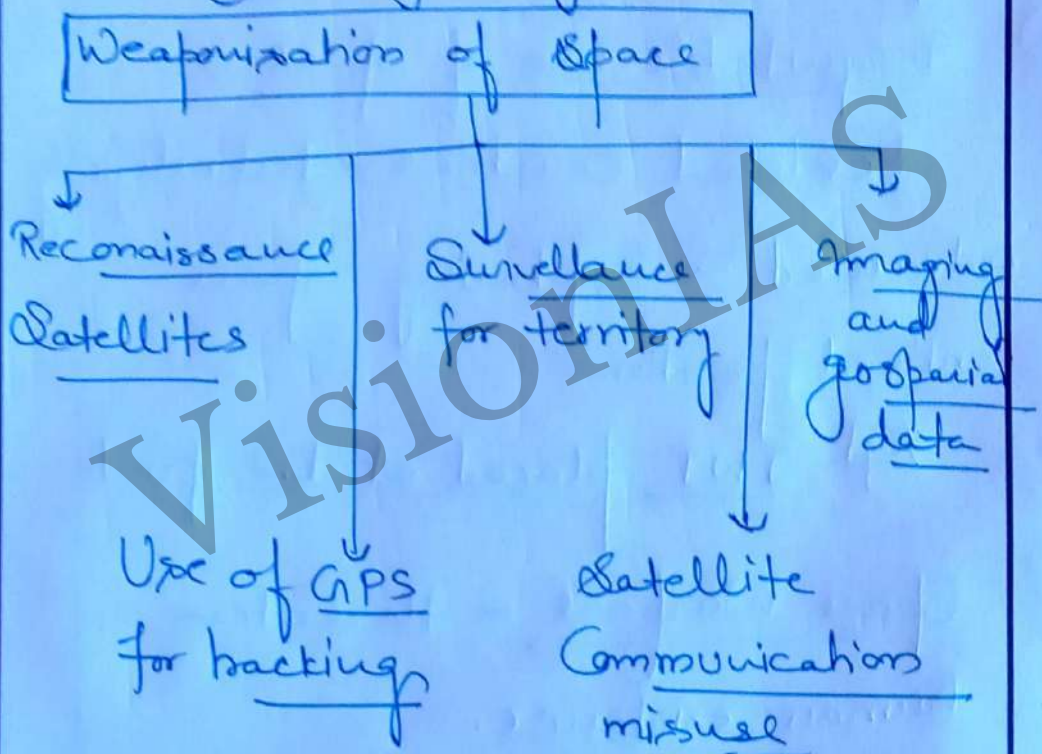 Weaponization of Space
Reconaissance
Satellites
Survellance
for territory
Imaging
and
geospacial
data
Use of GPS
for tracking
Satellite
Communication
misuse
VisionIAS